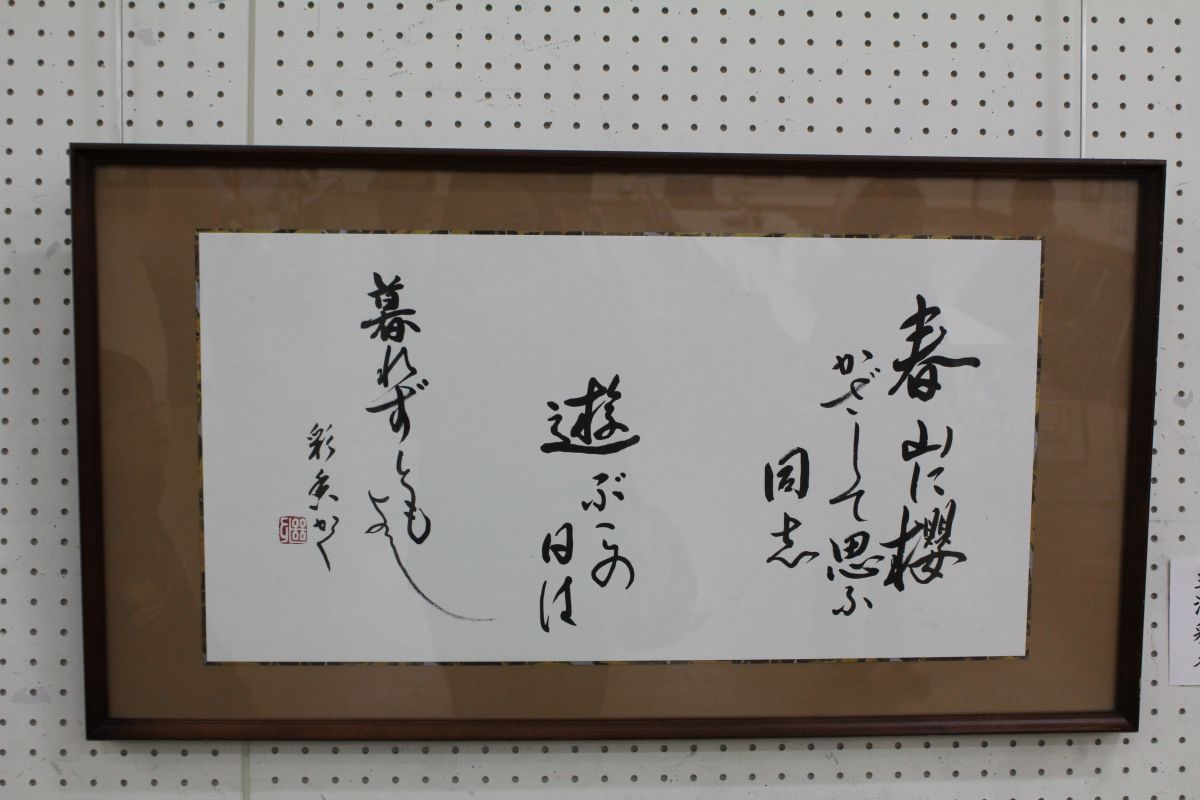 春山に櫻
かざして思ふ
同志
遊ぶこの
日は
暮れずともよし
彩香かく